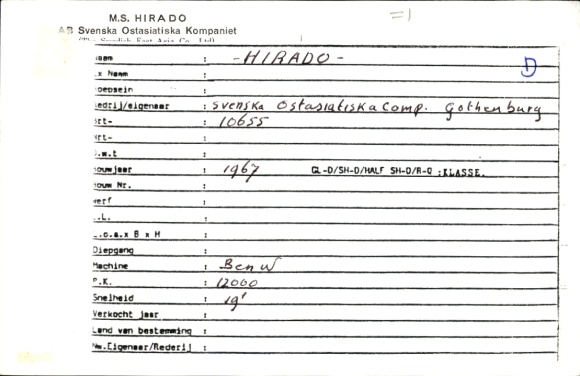 =1
M.S. HIRADO
AB Svenska Ostasiatiska Kompaniet
(The Swedish East Asia Co. Ltd)
naam : -HIRADO-
D
x Naam :
oepsein :
edrij/eigenaar : Svenska Ostasiatiska Comp. Gothenburg
rt- : 10655
rt- :
.w.t :
ouwjaar : 1967 GL-D/SH-D/HALF SH-D/R-O :KLASSE.
ouw Nr. :
erf :
.L. :
L.o.a.x B x H :
Diepgang :
Machine : B en W
P.K. : 12000
Snelheid : 19'
Verkocht jaar :
Land van bestemming :
Nw.Eigenaar/Rederij :